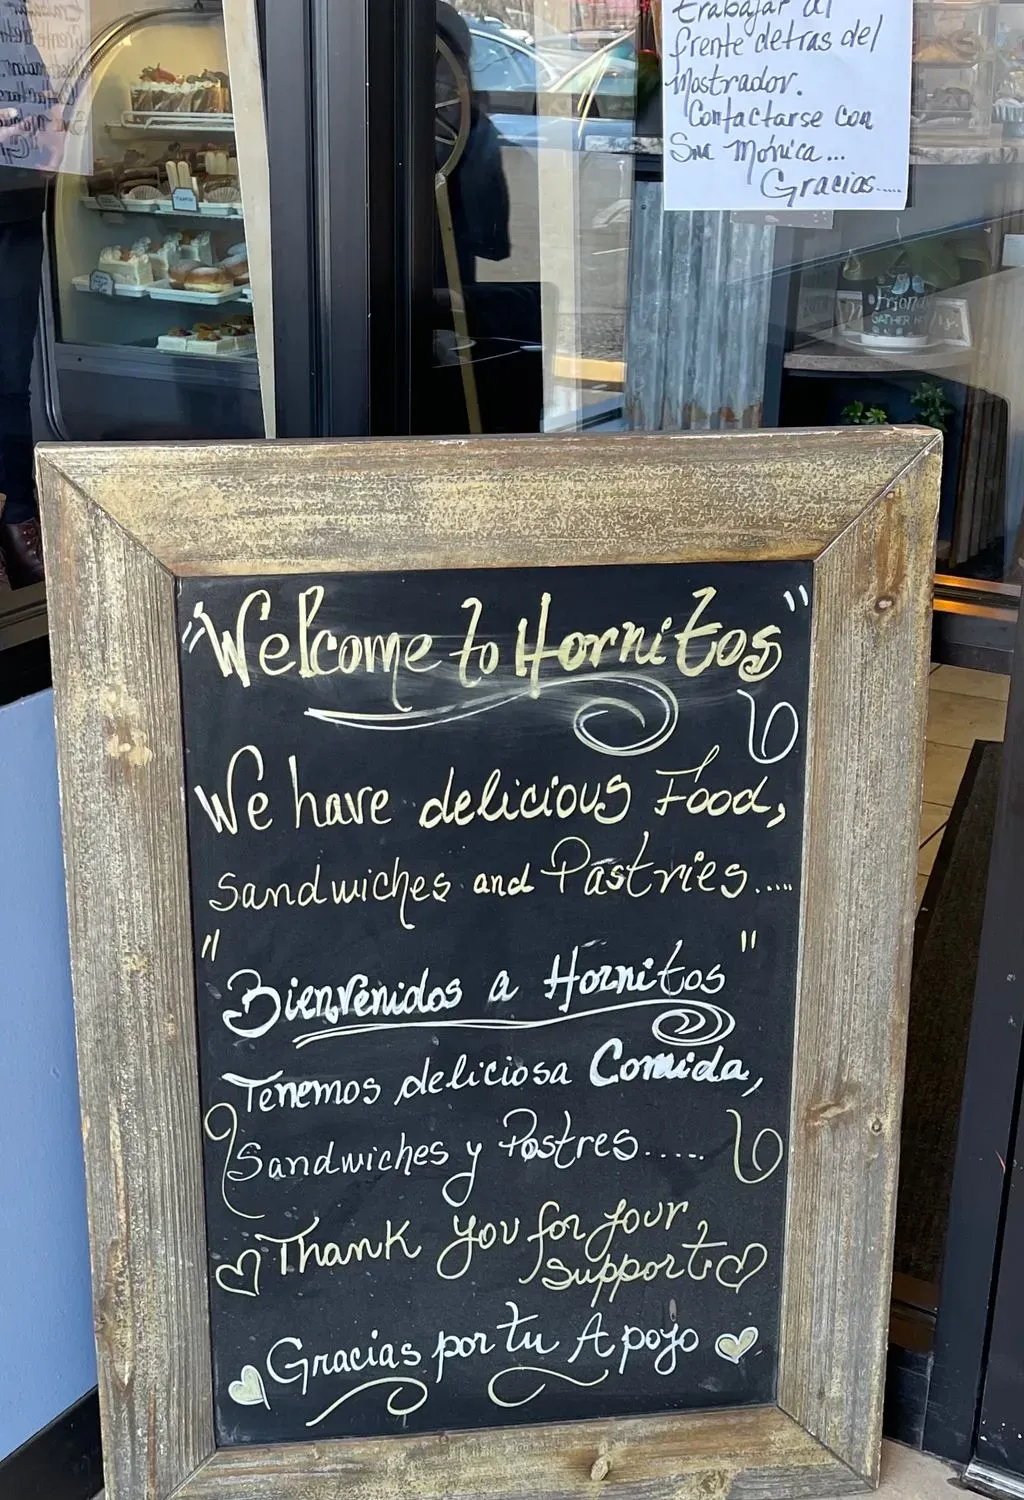 trabajar al
frente detras del
Mostrador.
Contactarse con
Sra Mónica...
Gracias.....
"Welcome to Hornitos"
We have delicious Food,
Sandwiches and Pastries.....
"Bienvenidos a Hornitos"
Tenemos deliciosa Comida,
Sandwiches y Postres.....
Thank you for your
support
Gracias por tu Apoyo